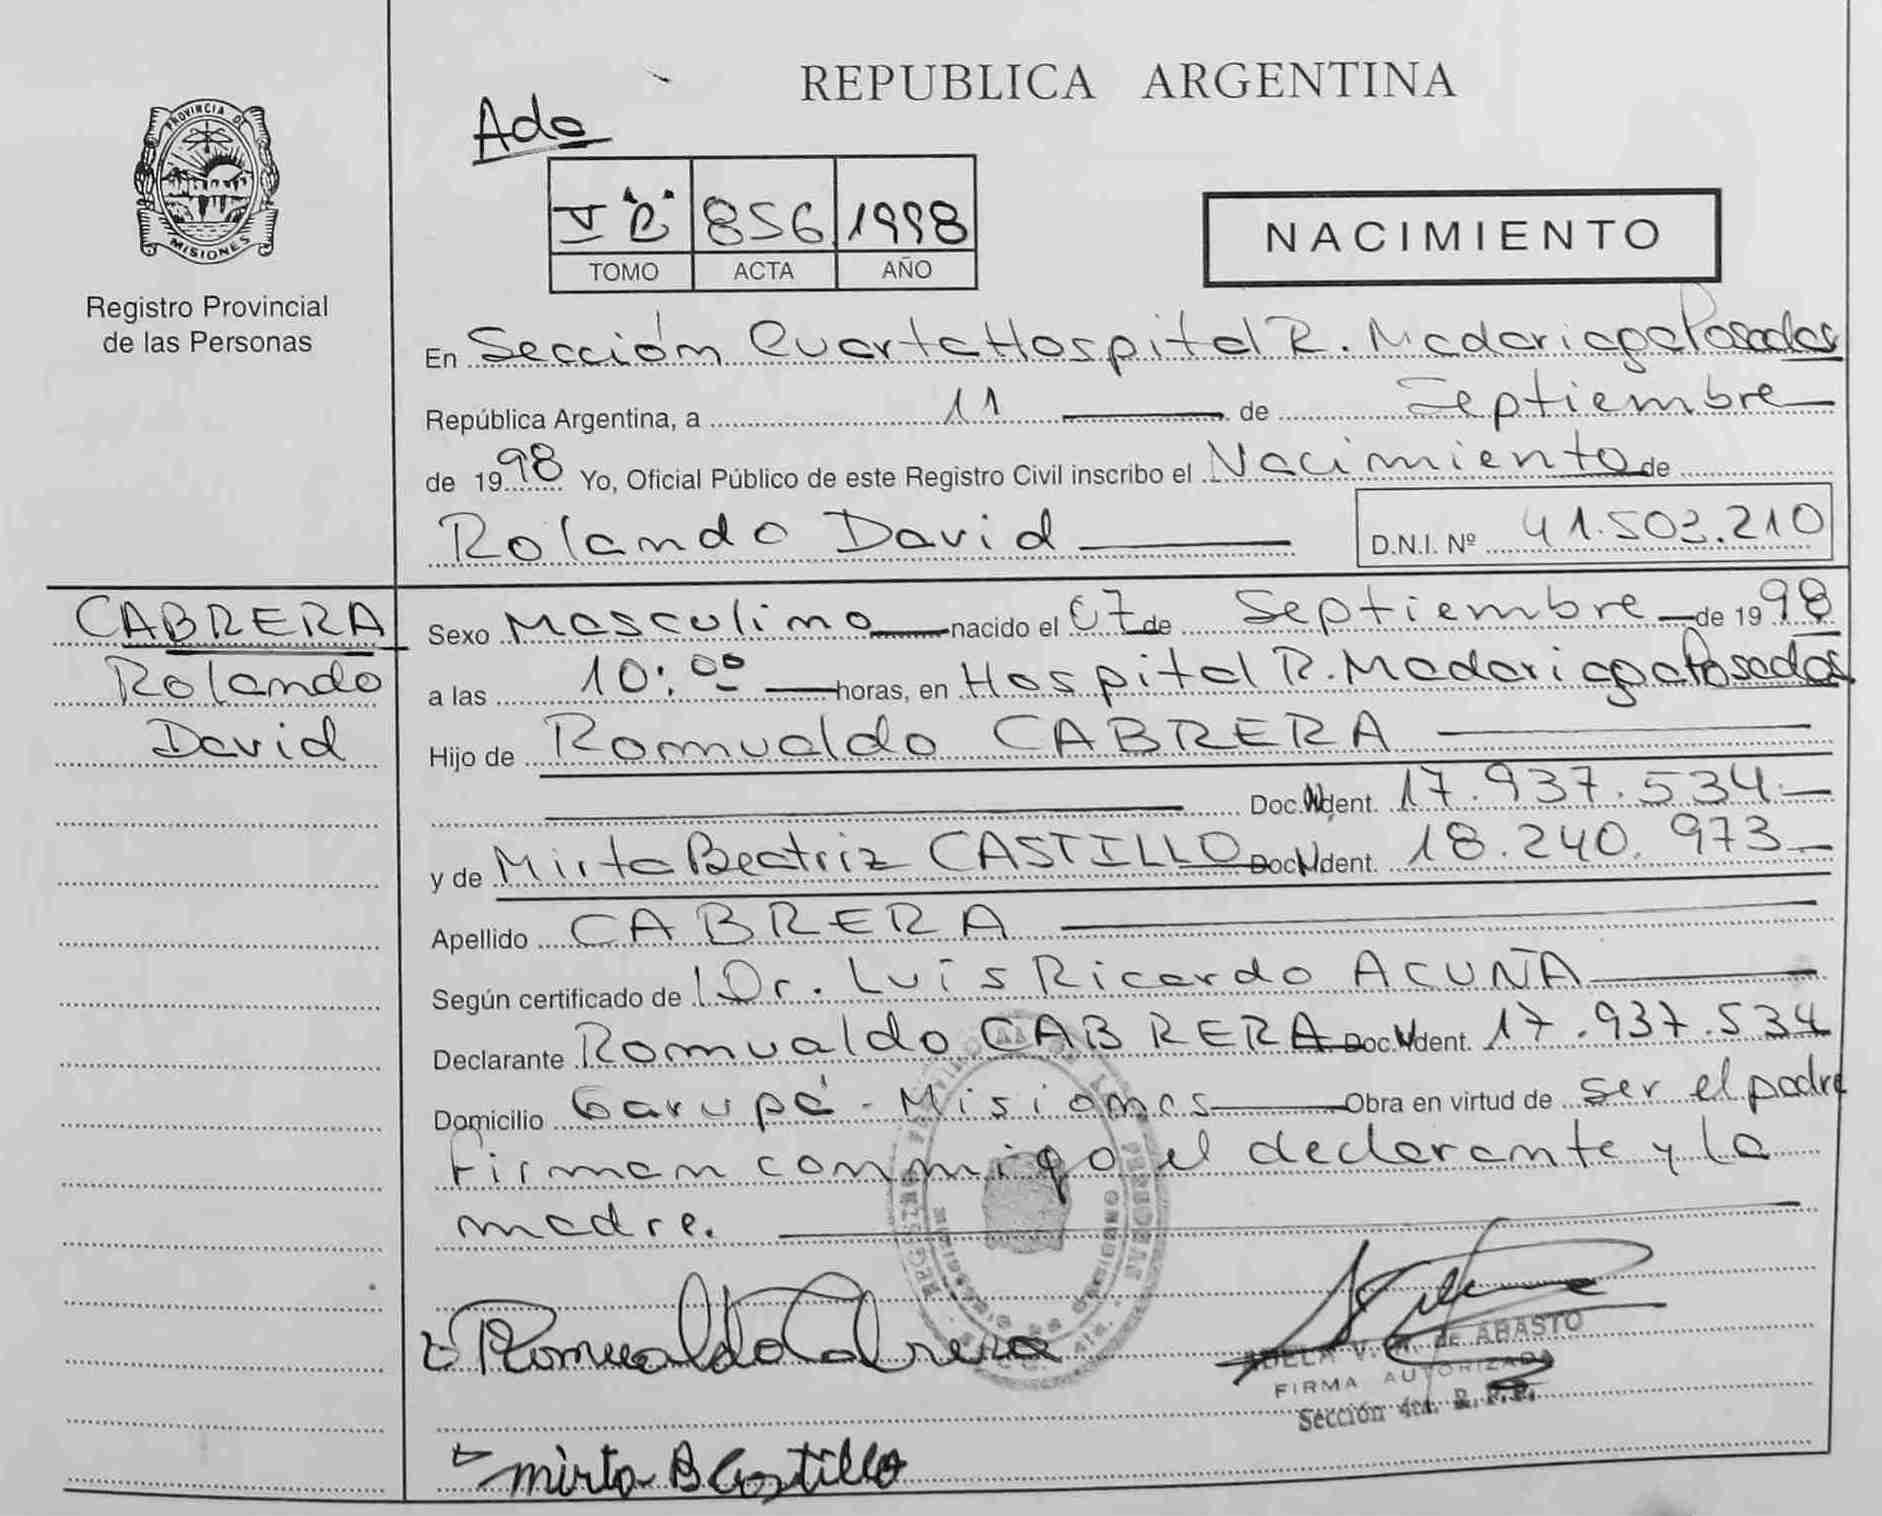 REPUBLICA ARGENTINA
PROVINCIA DE
MISIONES
Registro Provincial
de las Personas
856 1998
TOMO ACTA AÑO
NACIMIENTO
En Sección Cuarta Hospital R. Madariaga Posadas
República Argentina, a 11 de Septiembre
de 1998 Yo, Oficial Público de este Registro Civil inscribo el Nacimiento de
Rolando David D.N.I. Nº 41.503.210
CABRERA
Rolando
David
Sexo Masculino nacido el 07 de Septiembre de 1998
a las 10:00 horas, en Hospital R. Madariaga Posadas
Hijo de Romualdo CABRERA
Doc. Ident. 17.937.534
y de Mirta Beatriz CASTILLO Doc. Ident. 18.240.973
Apellido CABRERA
Según certificado de Dr. Luis Ricardo ACUÑA
Declarante Romualdo CABRERA Doc. Ident. 17.937.534
Domicilio Garupá - Misiones Obra en virtud de ser el padre
Firman conmigo el declarante y la
madre.
Romualdo Cabrera
ADELA V. de ABASTO
FIRMA AUTORIZADA
Sección 4ta. R. P. P.
Mirta B Castillo